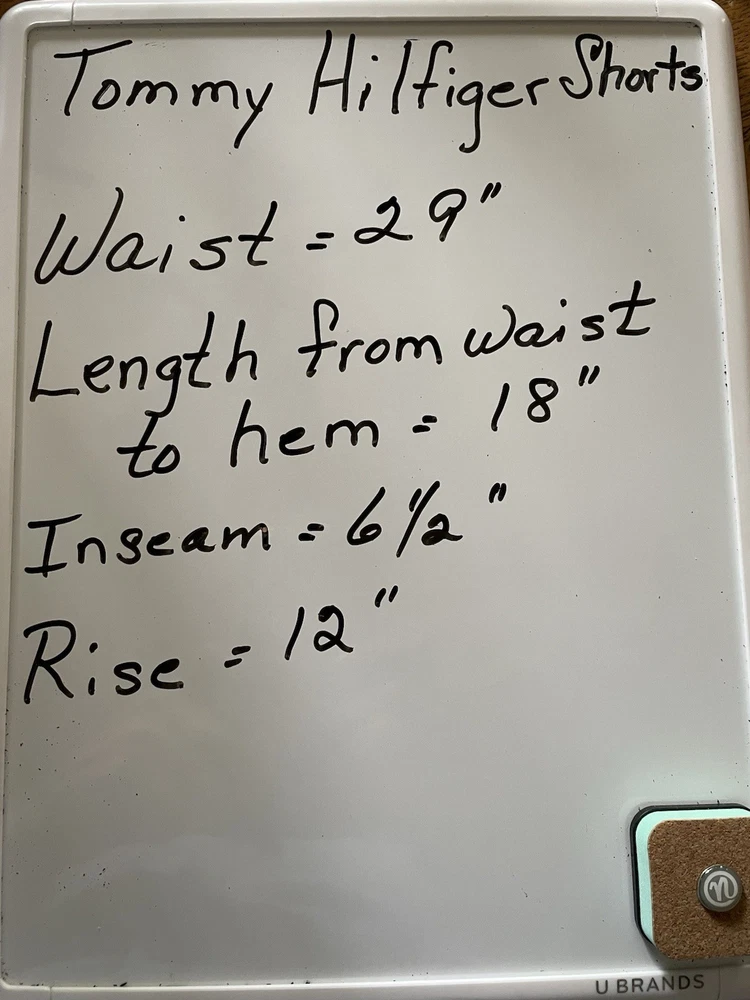 Tommy Hilfiger Shorts
Waist = 29"
Length from waist
to hem = 18"
Inseam = 6 1/2"
Rise = 12"
U BRANDS